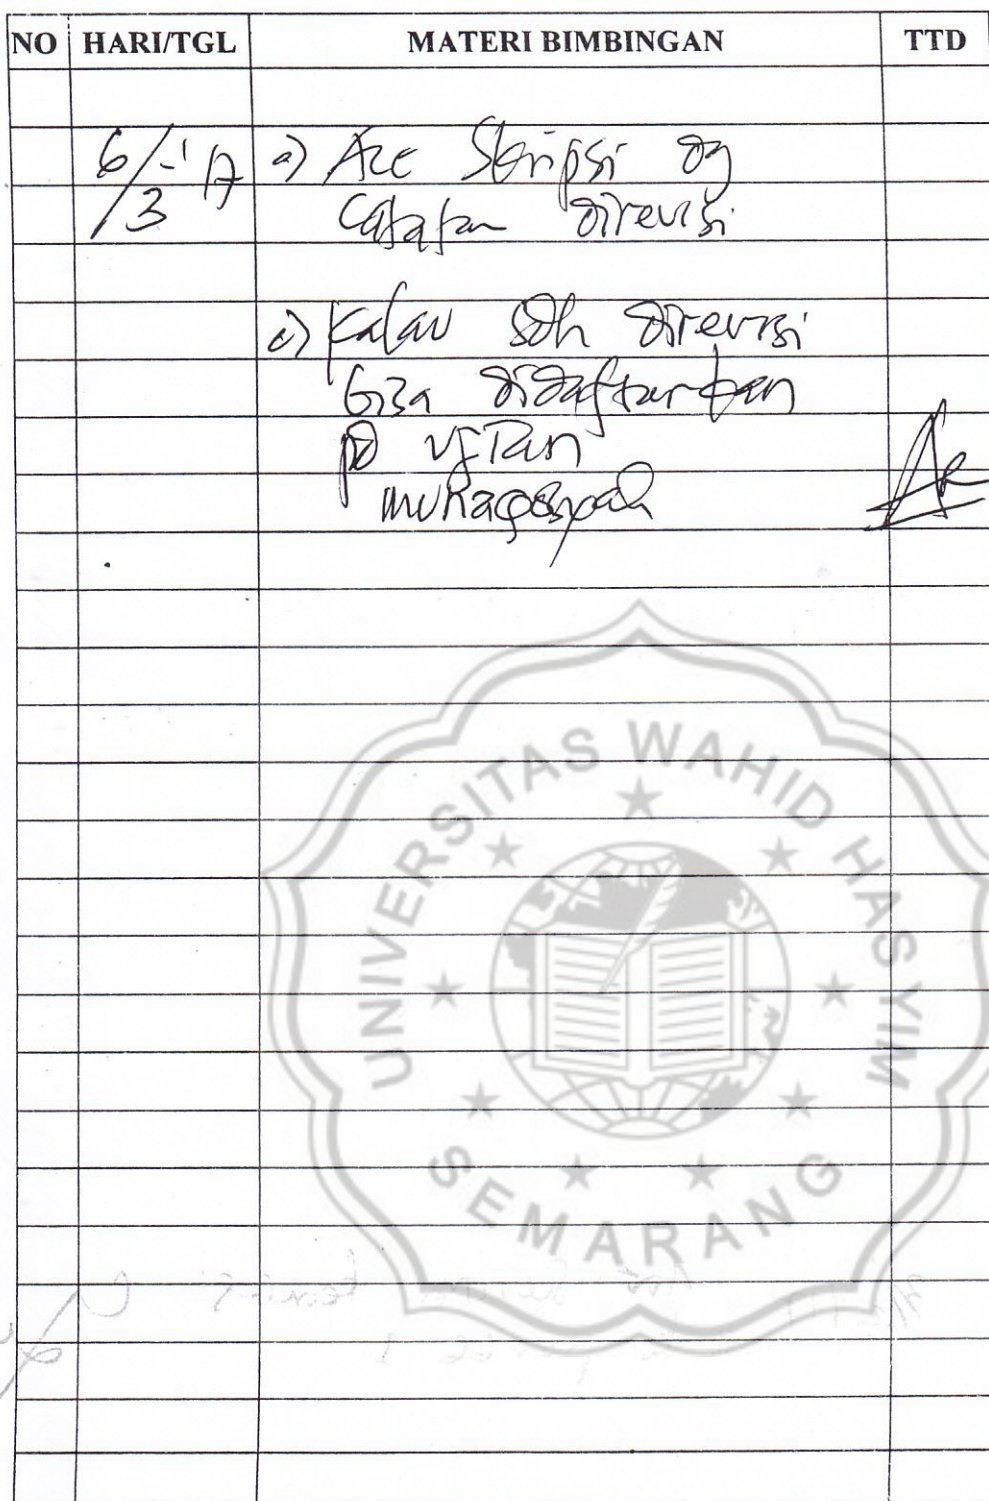 NO HARI/TGL MATERI BIMBINGAN TTD
6/3 -'17 a) Acc Skripsi dg
catatan direvisi
c) Kalau sdh direvisi
bisa didaftarkan
pd ujian
munaqosyah
UNIVERSITAS WAHID HASYIM
SEMARANG